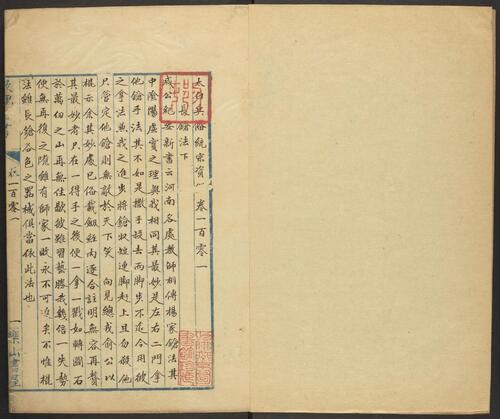 太白兵備統宗寶 卷一百零一
長鎗法下
戚公紀效新書云河南各處教師相傳楊家鎗法其
中陰陽虛實之理與我相同其最妙是左右二門拿
他鎗手法其不如是撒手殺去而脚步不進今用彼
之拿法兼我之進步將鎗收短連脚赶上且勿殺他
只管定他鎗則無敵於天下矣 向見總戎俞公以
棍示余其妙處已俗載劍經內逐合註明無容再贅
其最妙者只在一得手之後便一拿一戳如轉圓石
於萬仞之山再無住歇彼雖習藝勝我幾倍一失勢
便無再復之隙雖有師家一敗永不可返矣不惟棍
法雖長鎗各色之器械俱當依此法也
卷一百零一
一
樂山書屋